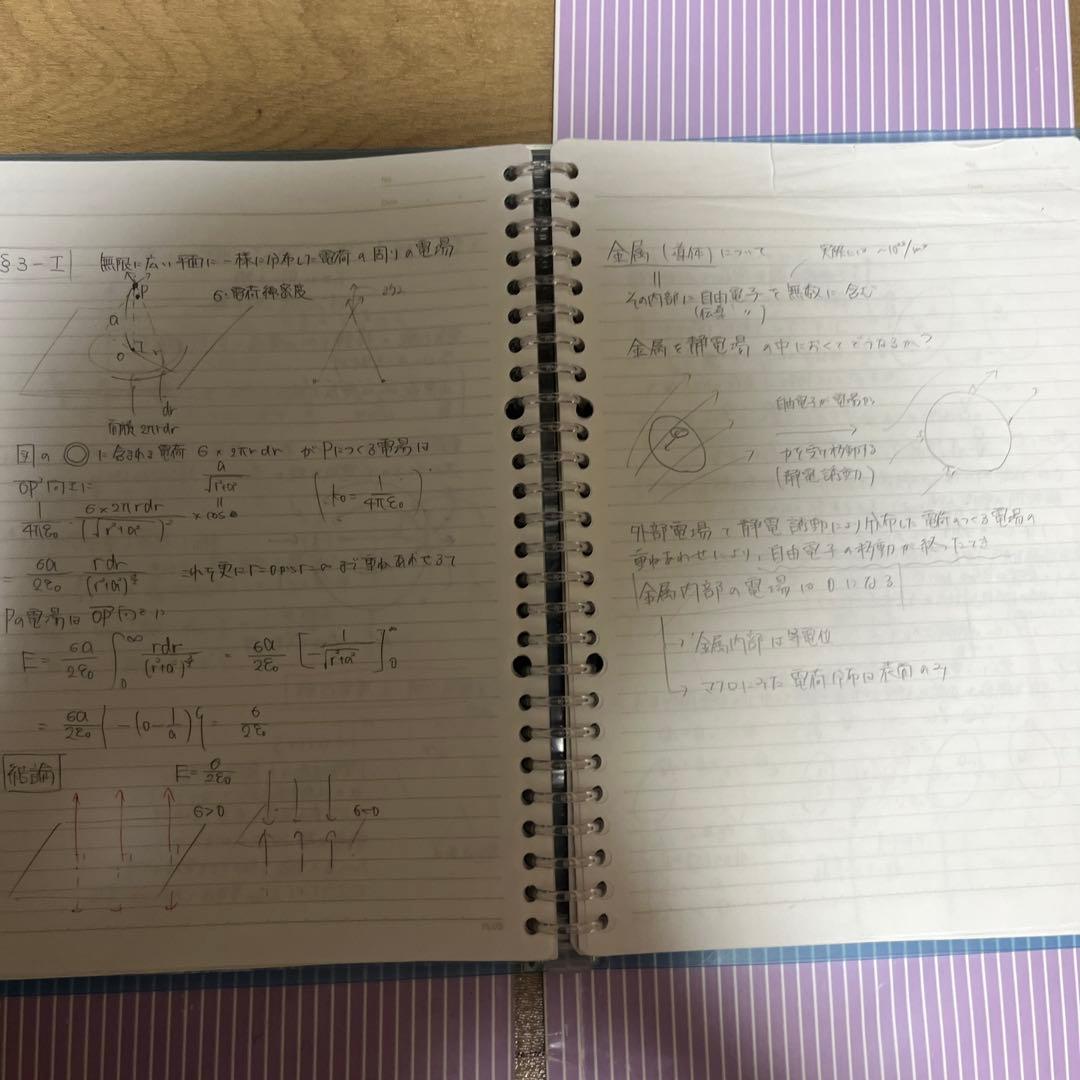 §3-I 無限に広い平面に一様に分布した電荷の周りの電場
P
σ:電荷面密度
a
O r
dr
面積2πrdr
図の◎に含まれる電荷 σ×2πrdr がPにつくる電場は
OP方向に a/√(r²+a²)
(k₀ = 1/4πε₀)
1/4πε₀ · σ×2πrdr/(√(r²+a²))² × cosθ
= σa/2ε₀ · rdr/(r²+a²)^(3/2) これを更にr=0からr=∞まで重ねあわせると
Pの電場はOP方向に
E = σa/2ε₀ ∫₀^∞ rdr/(r²+a²)^(3/2) = σa/2ε₀ [-1/√(r²+a²)]₀^∞
= σa/2ε₀ {-(0-1/a)} = σ/2ε₀
結論 E = σ/2ε₀
σ>0
σ<0
金属(導体)について 実際には ~10²³/m³
||
その内部に自由電子を無数に含む
(伝導 〃)
金属を静電場の中におくとどうなるか?
自由電子が電場から
力を受け移動する
(静電誘導)
外部電場と静電誘導により分布した電荷のつくる電場の
重ねあわせにより、自由電子の移動が終ったとき
金属内部の電場は0になる
→ 金属内部は等電位
→ マクロにみた電荷分布は表面のみ